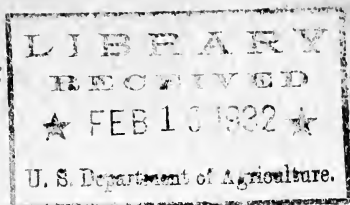 LIBRARY
RECEIVED
★ FEB 1 1932 ★
U. S. Department of Agriculture.